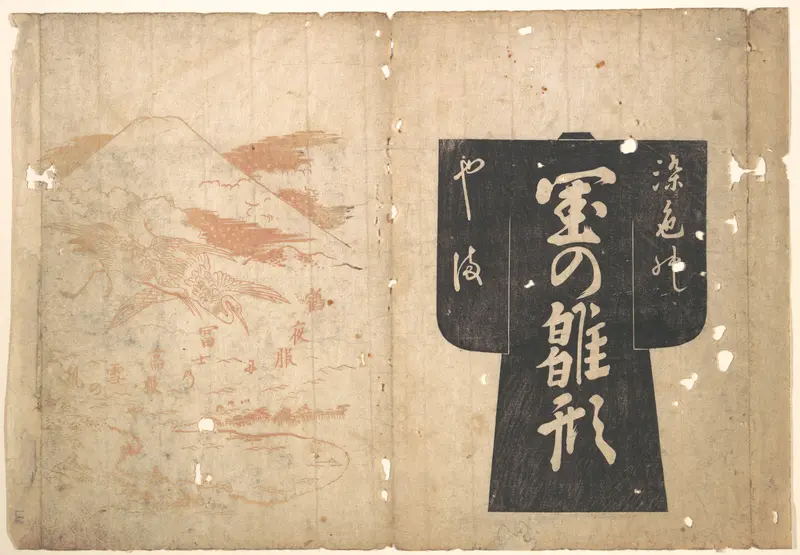 染色の
閨の雛形
やま
鶴
夜服
冨士の
高根
雪の